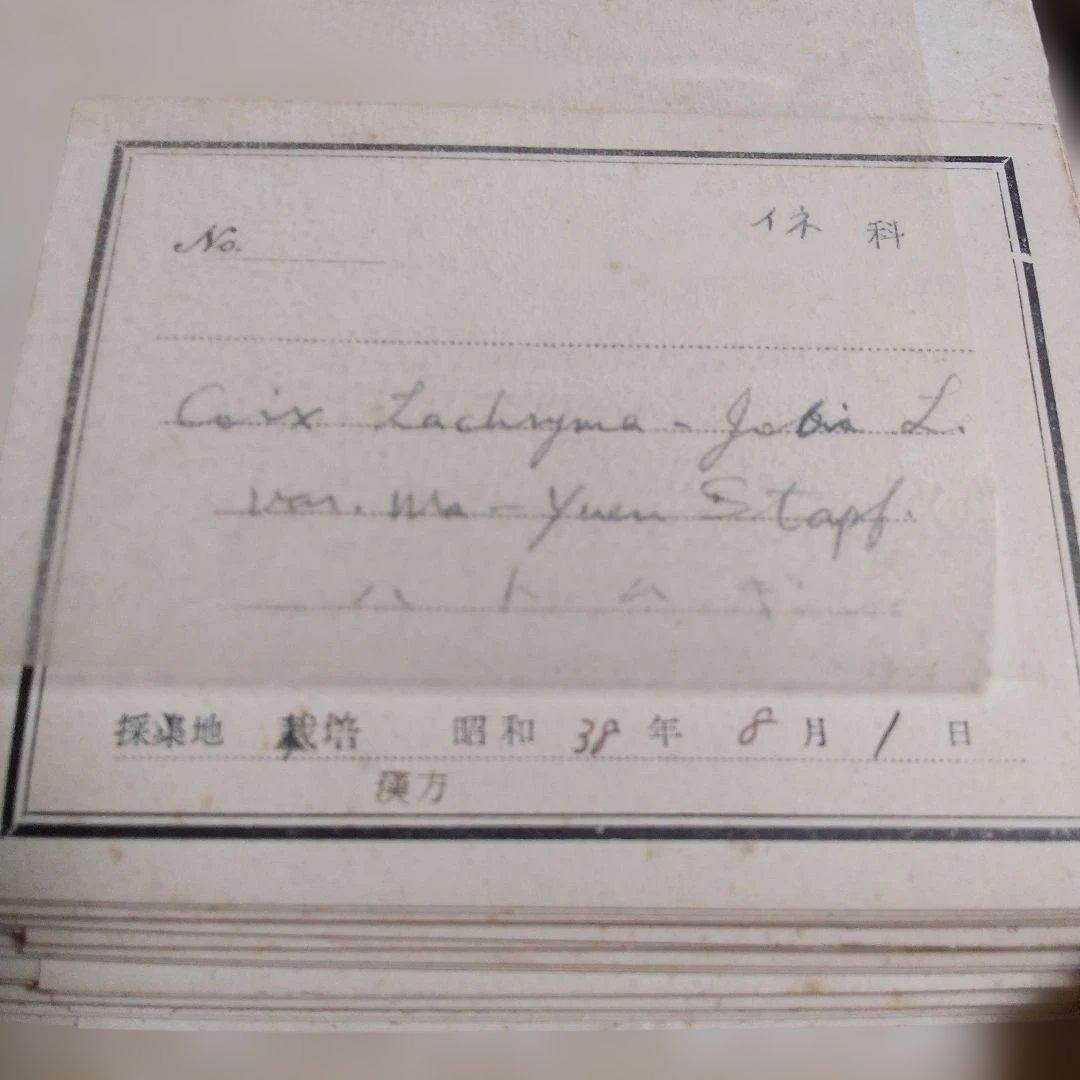 No. イネ 科
Coix Lachryma - Jobis L.
var. Ma - Yuen Stapf.
ハトムギ
採集地 栽培 昭和 38 年 8 月 1 日
漢方